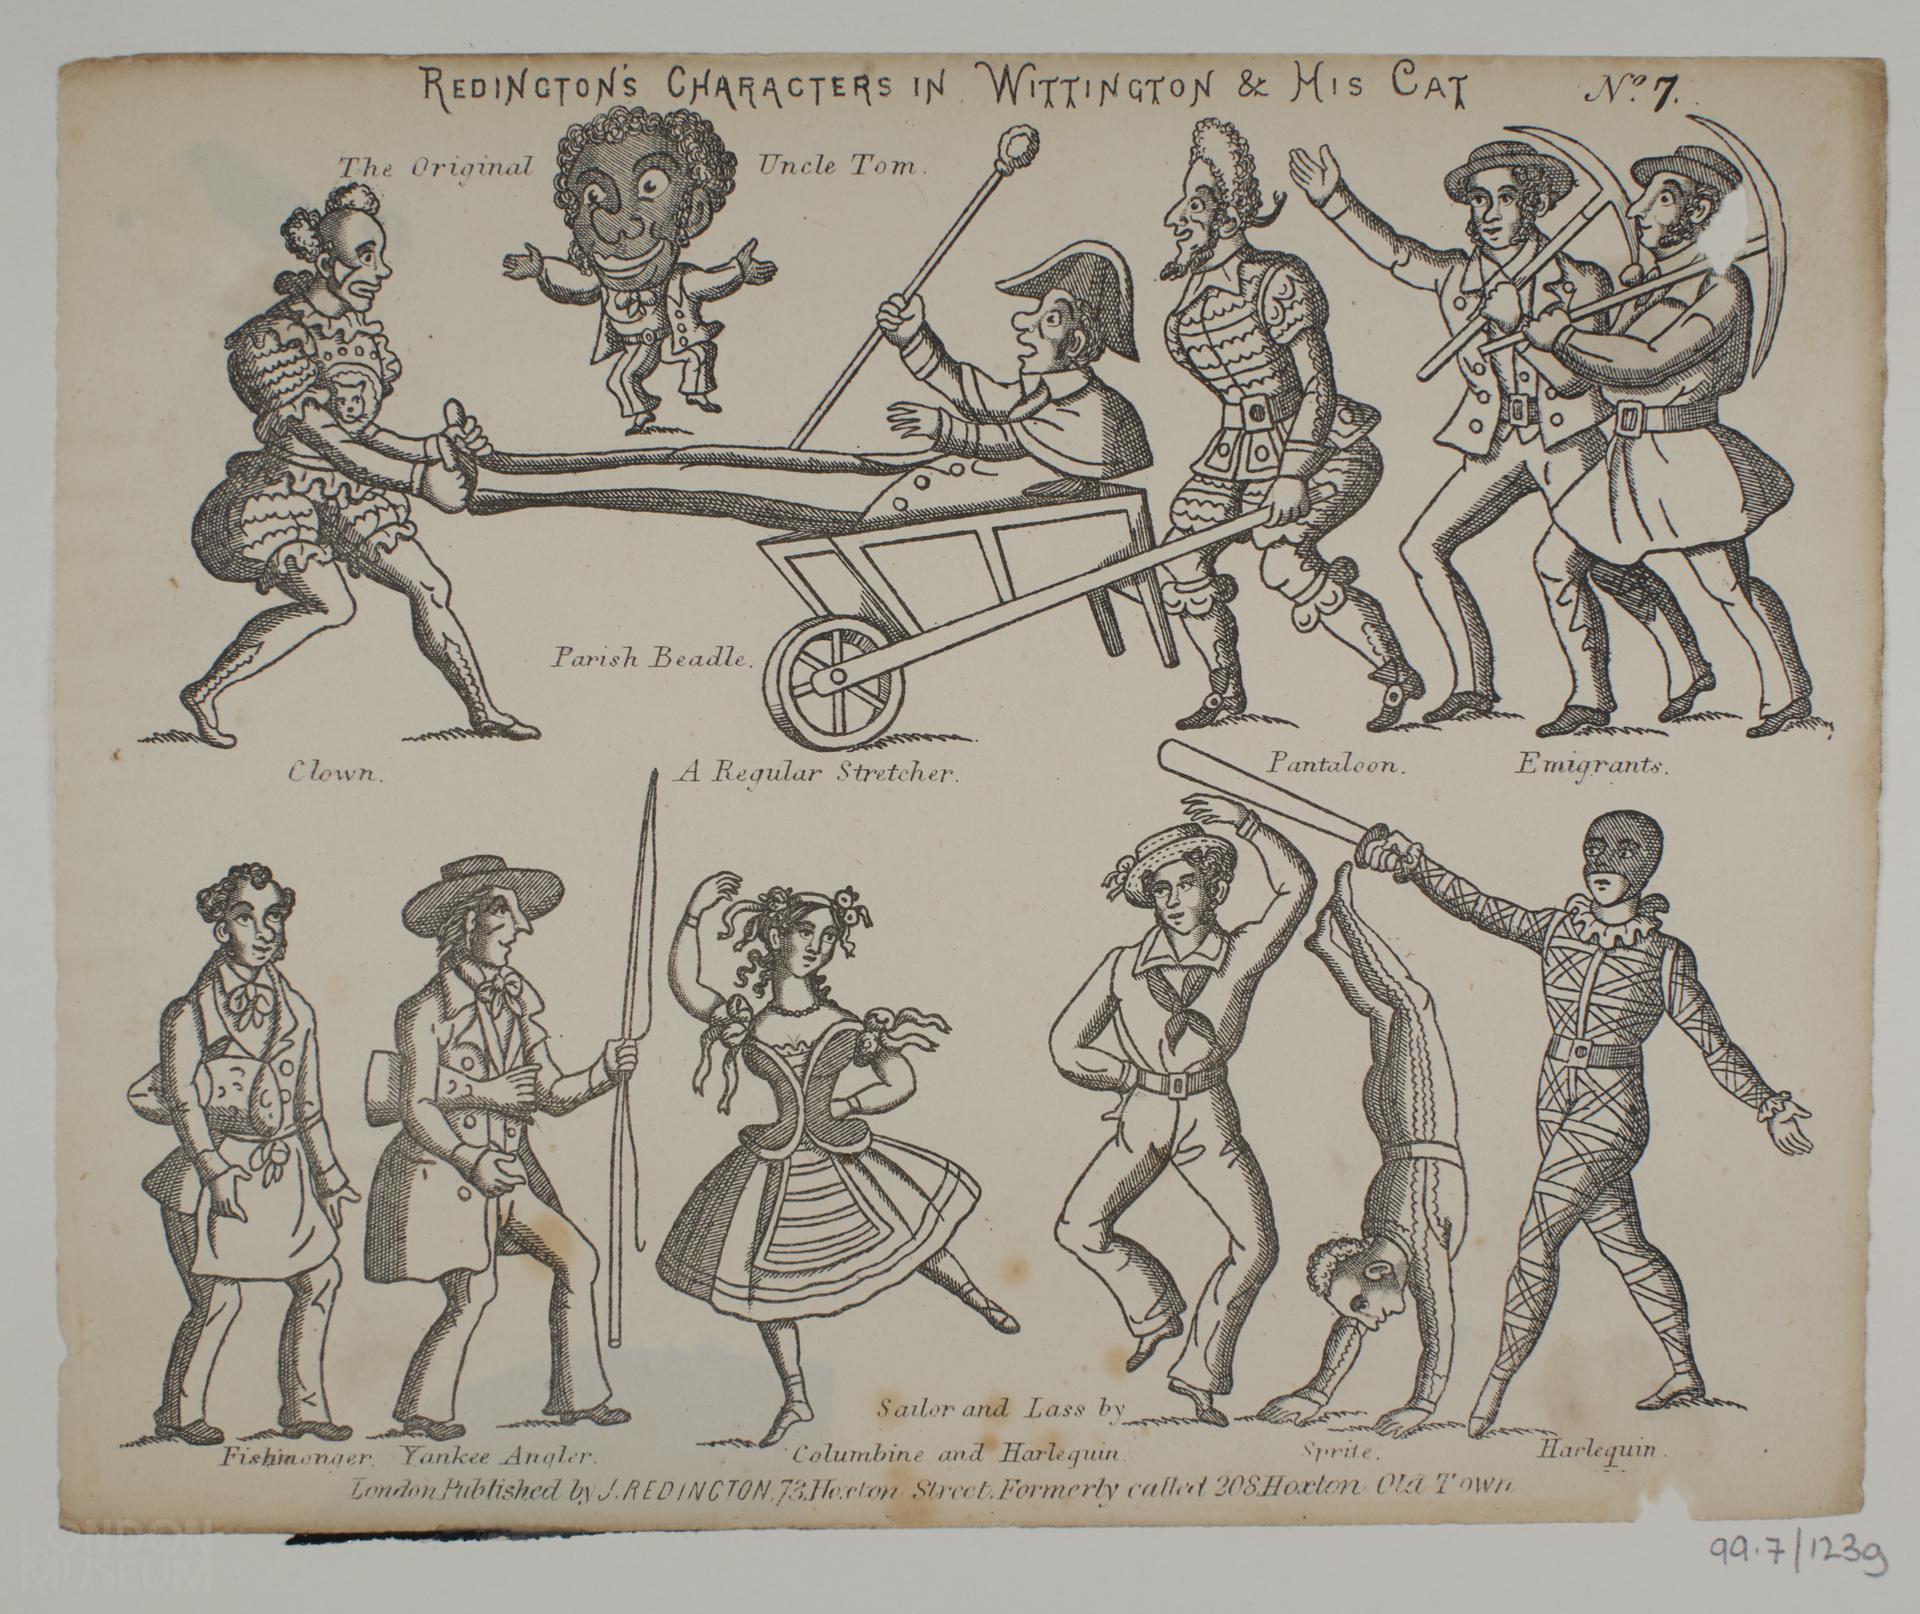 REDINGTON'S CHARACTERS IN WITTINGTON & HIS CAT No. 7.
The Original Uncle Tom.
Parish Beadle.
Clown. A Regular Stretcher. Pantaloon. Emigrants.
Sailor and Lass by
Fishmonger. Yankee Angler. Columbine and Harlequin. Sprite. Harlequin.
London, Published by J. REDINGTON, 73, Hoxton Street, Formerly called 208, Hoxton Old Town
LONDON
MUSEUM
99.7/123g